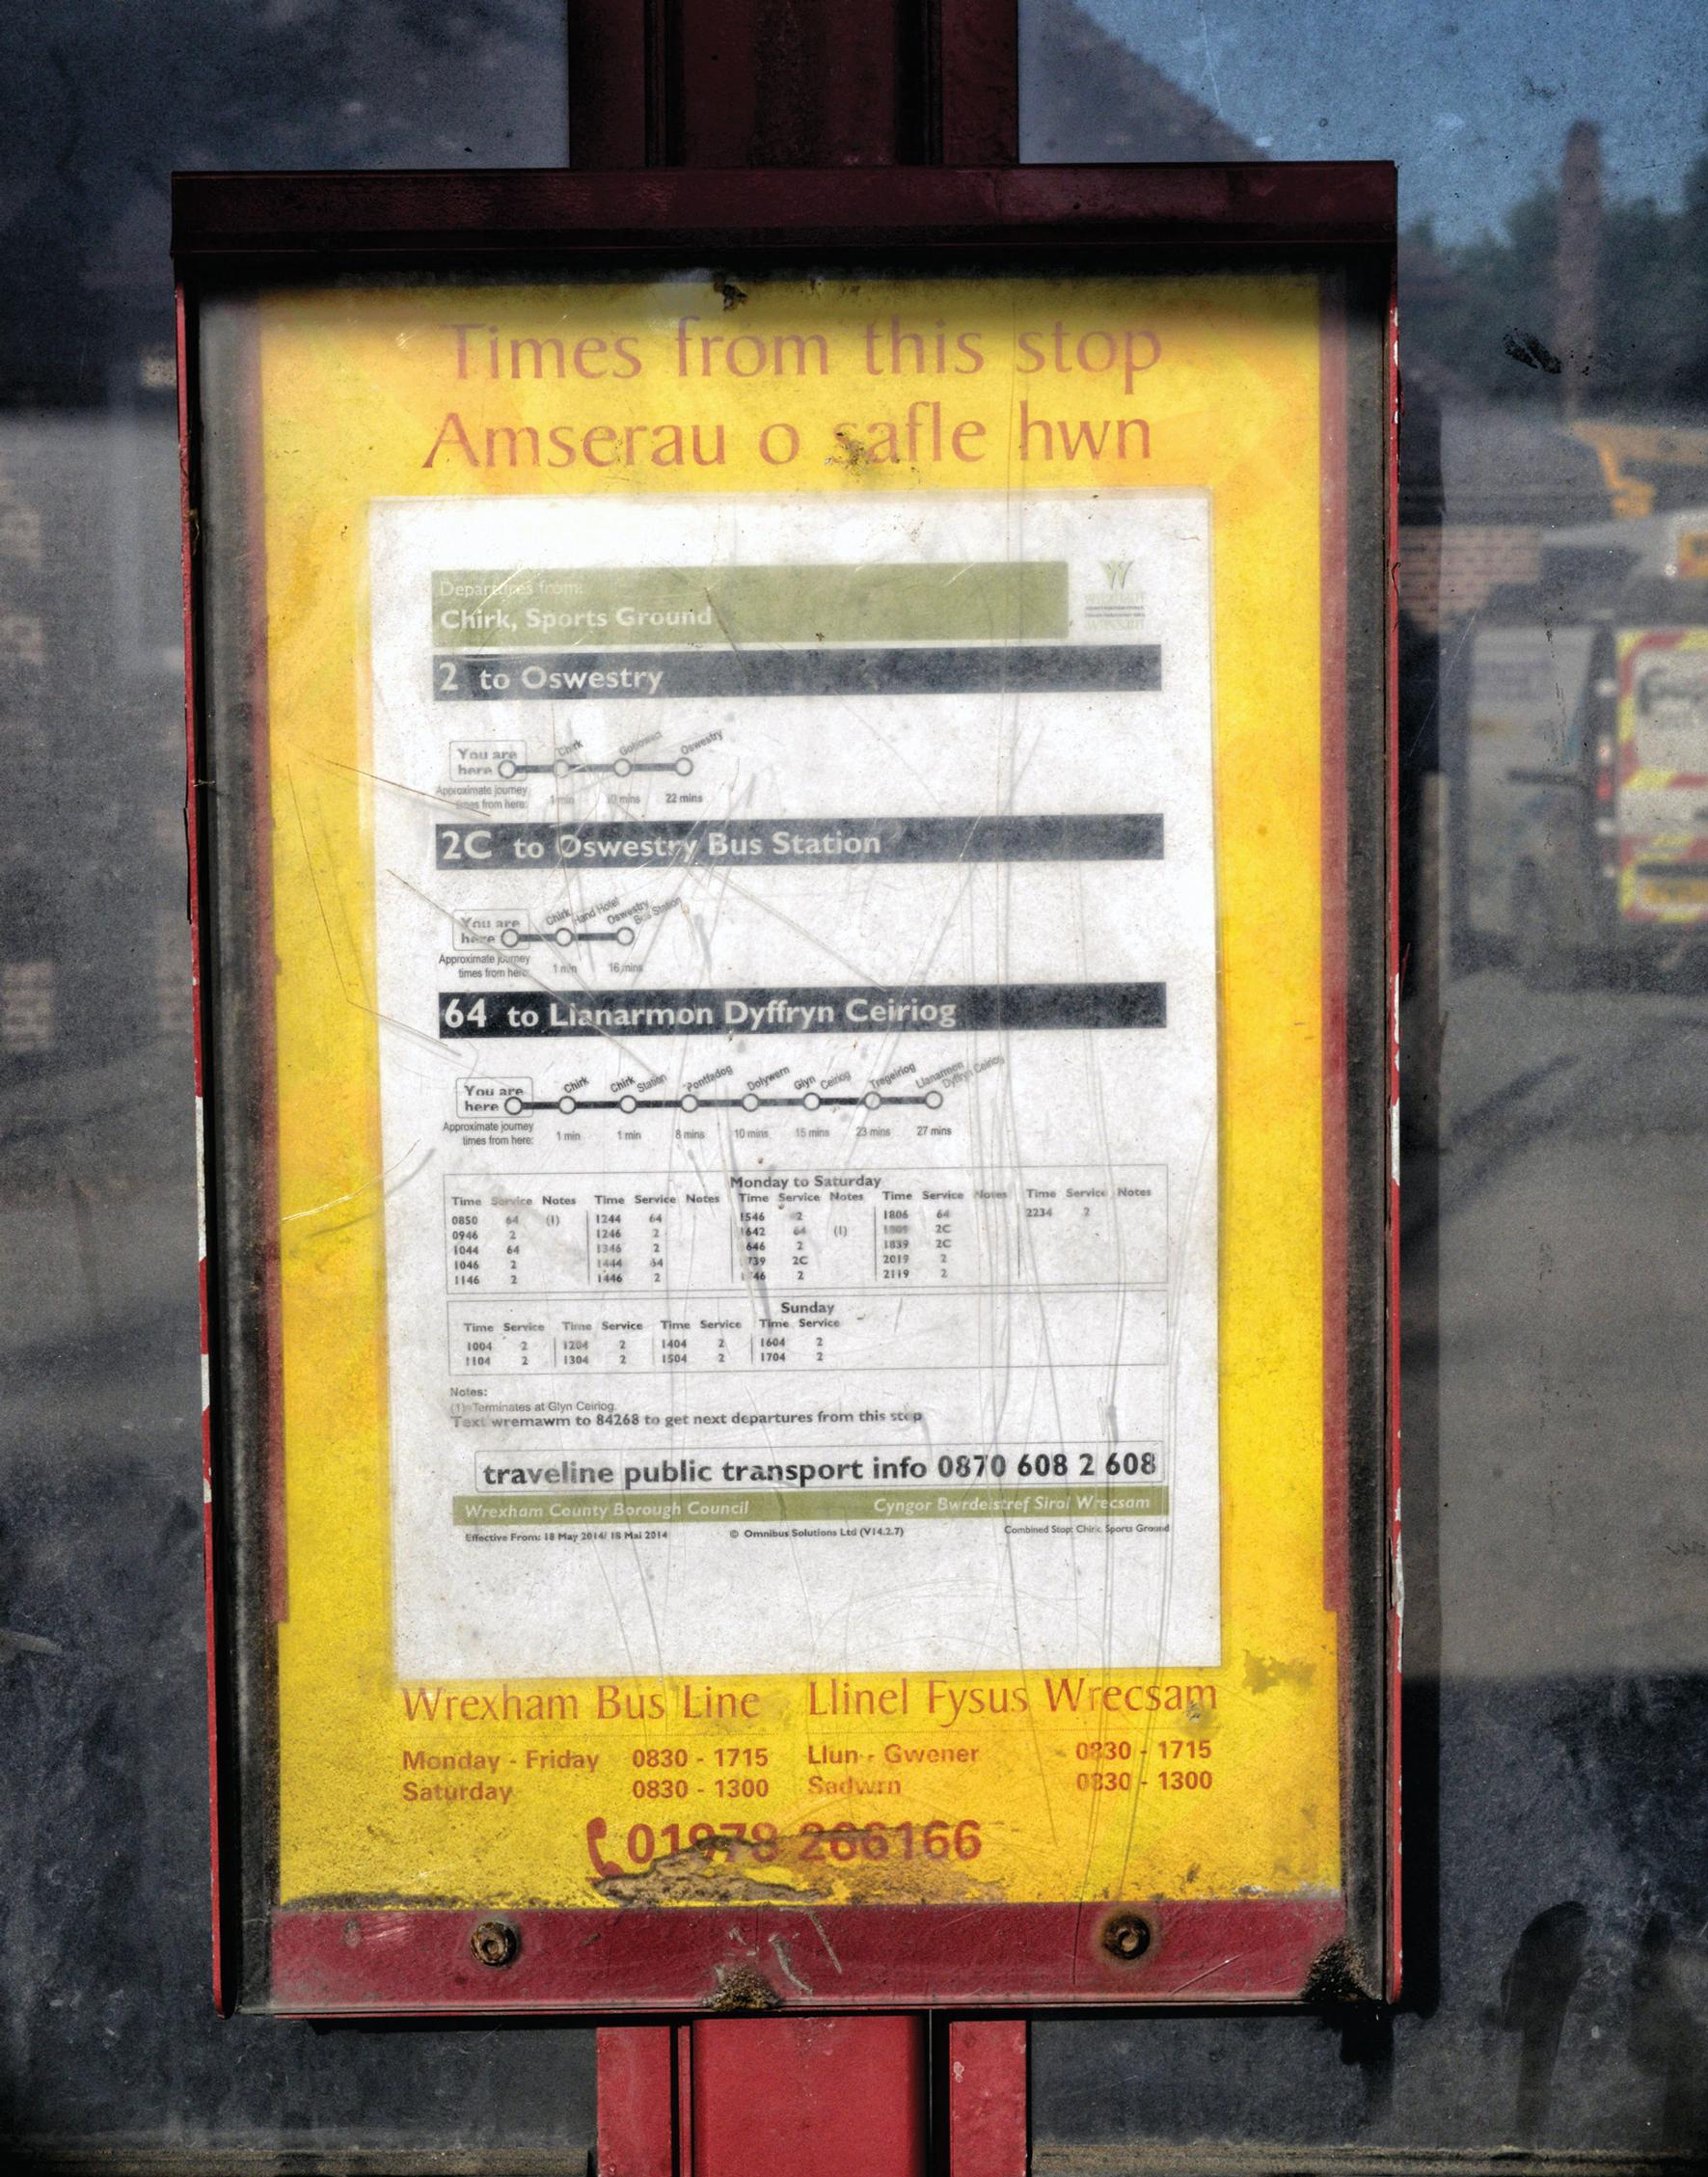 Times from this stop
Amserau o safle hwn
Departures from:
Chirk, Sports Ground
2 to Oswestry
You are
here
Chirk
Gobowen
Oswestry
Approximate journey
times from here:
1 min
10 mins
22 mins
2C to Oswestry Bus Station
You are
here
Chirk
Hand Hotel
Oswestry
Bus Station
Approximate journey
times from here:
1 min
16 mins
64 to Llanarmon Dyffryn Ceiriog
You are
here
Chirk
Chirk Station
Pontfadog
Dolywern
Glyn Ceiriog
Tregeiriog
Llanarmon
Dyffryn Ceiriog
Approximate journey
times from here:
1 min
1 min
8 mins
10 mins
15 mins
23 mins
27 mins
Monday to Saturday
Time Service Notes Time Service Notes Time Service Notes Time Service Notes Time Service Notes
0850 64 (1) 1244 64 1546 2 1806 64 2234 2
0946 2 1246 2 1642 64 (1) 2C
1044 64 1346 2 1646 2 1839 2C
1046 2 1444 64 1739 2C 2019 2
1146 2 1446 2 1746 2 2119 2
Sunday
Time Service Time Service Time Service Time Service
1004 2 1204 2 1404 2 1604 2
1104 2 1304 2 1504 2 1704 2
Notes:
(1) Terminates at Glyn Ceiriog.
Text wremawm to 84268 to get next departures from this stop
traveline public transport info 0870 608 2 608
Wrexham County Borough Council Cyngor Bwrdeistref Sirol Wrecsam
Effective From: 18 May 2014/ 18 Mai 2014 © Omnibus Solutions Ltd (V14.2.7) Combined Stop: Chirk, Sports Ground
Wrexham Bus Line Llinel Fysus Wrecsam
Monday - Friday 0830 - 1715 Llun - Gwener 0830 - 1715
Saturday 0830 - 1300 Sadwrn 0830 - 1300
01978 266166